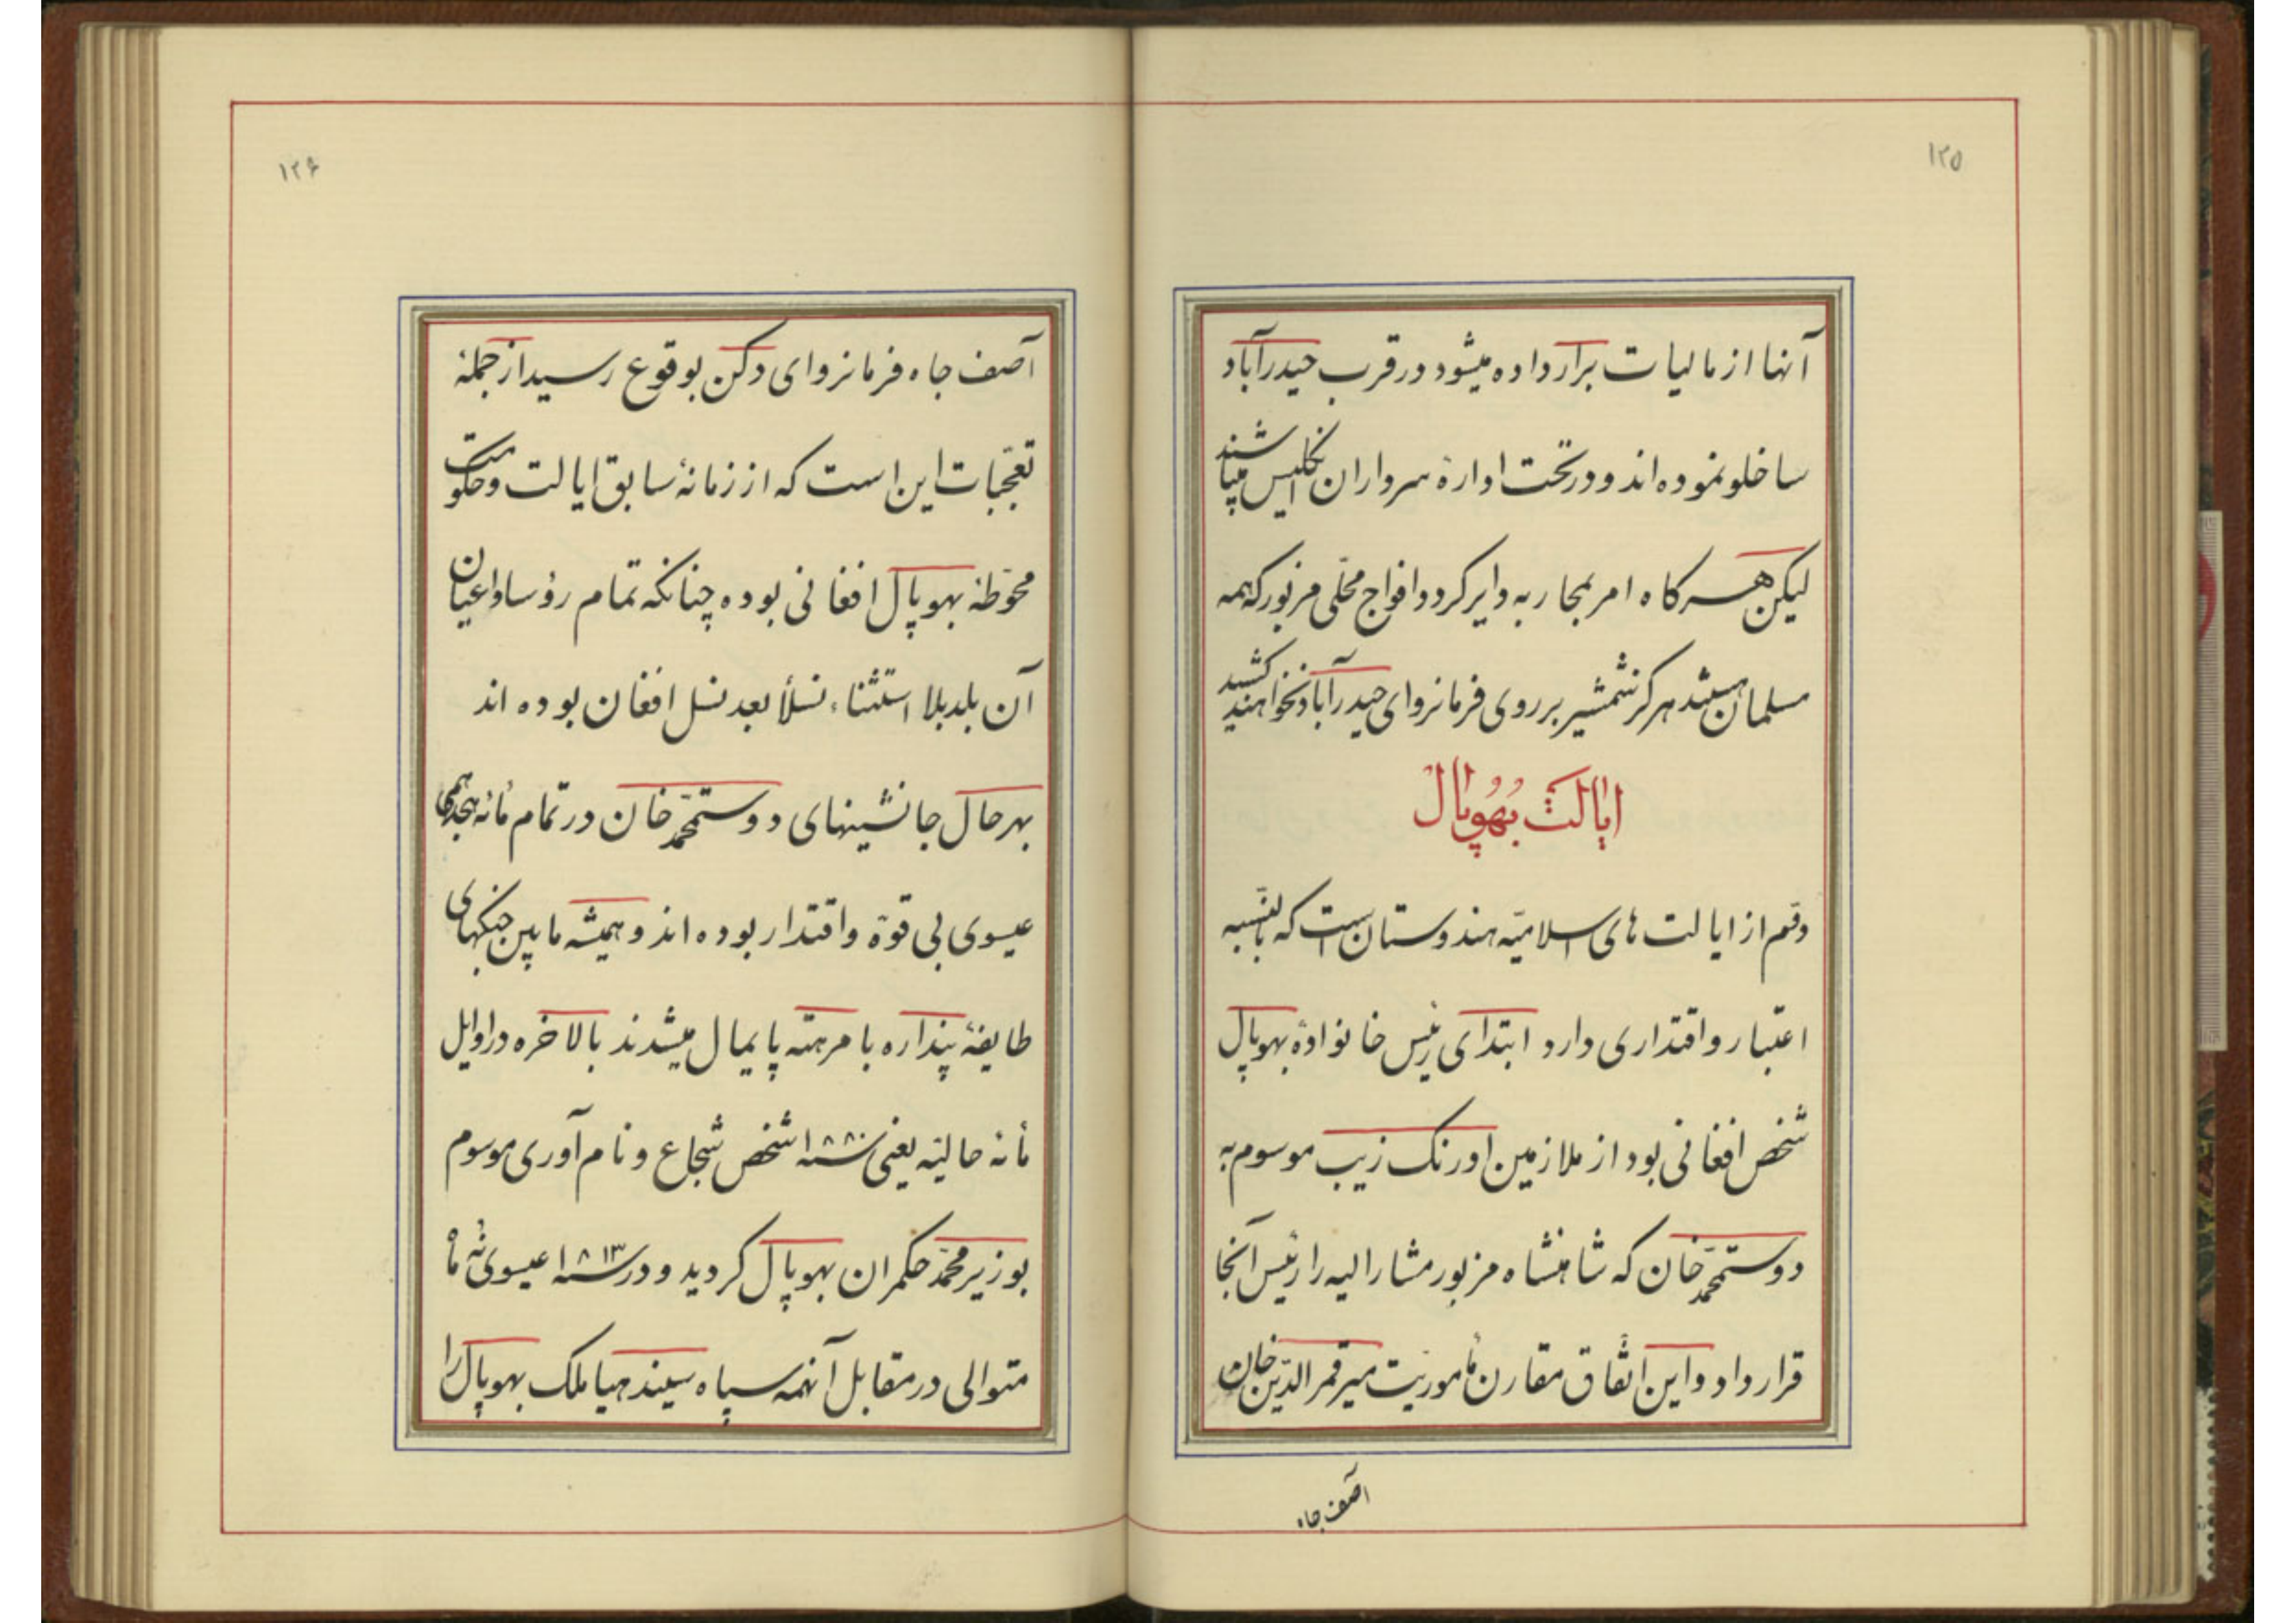 ۱۲۵
آنها از مالیات برار داده میشود در قرب حیدرآباد
ساخلو نموده‌اند و در تحت ادارهٔ سرداران انگلیس میباشند
لیکن هرکاه امر بمحاربه دایر کردد افواج محلّی مزبور که همه
مسلمان هستند هرکز شمشیر بر روی فرمانروای حیدرآباد نخواهند کشید
ایالت بهوپال
دوّم از ایالت های اسلامیّه هندوستان است که بالنّسبه
اعتبار و اقتداری دارد ابتدای رئیس خانوادهٔ بهوپال
شخص افغانی بود از ملازمین اورنک زیب موسوم به
دوستمحمّد خان که شاهنشاه مزبور مشارالیه را رئیس آنجا
قرار داد و این اتّفاق مقارن مأموریّت میر قمرالدّین خان
آصف جاه
۱۲۶
آصف جاه فرمانروای دکن بوقوع رسید از جملهٔ
تعجّبات این است که از زمانهٔ سابق ایالت و حکومت
محوّطهٔ بهوپال افغانی بوده چنانکه تمام رؤسا و اعیان
آن بلد بلا استثناء نسلاً بعد نسل افغان بوده اند
بهرحال جانشینهای دوستمحمّد خان در تمام مأئه هیجدهمی
عیسوی بی قوّة و اقتدار بوده اند و همیشه مابین جنکهای
طایفهٔ پنداره با مرهته پایمال میشدند بالاخره در اوایل
مأئه حالیّه یعنی سنه ۱۸۰۸ شخص شجاع و نام آوری موسوم
بوزیر محمّد حکمران بهوپال کردید و در سنه ۱۸۱۳ عیسوی نُه ماه
متوالی در مقابل آنهمه سپاه سیندهیا ملک بهوپال را